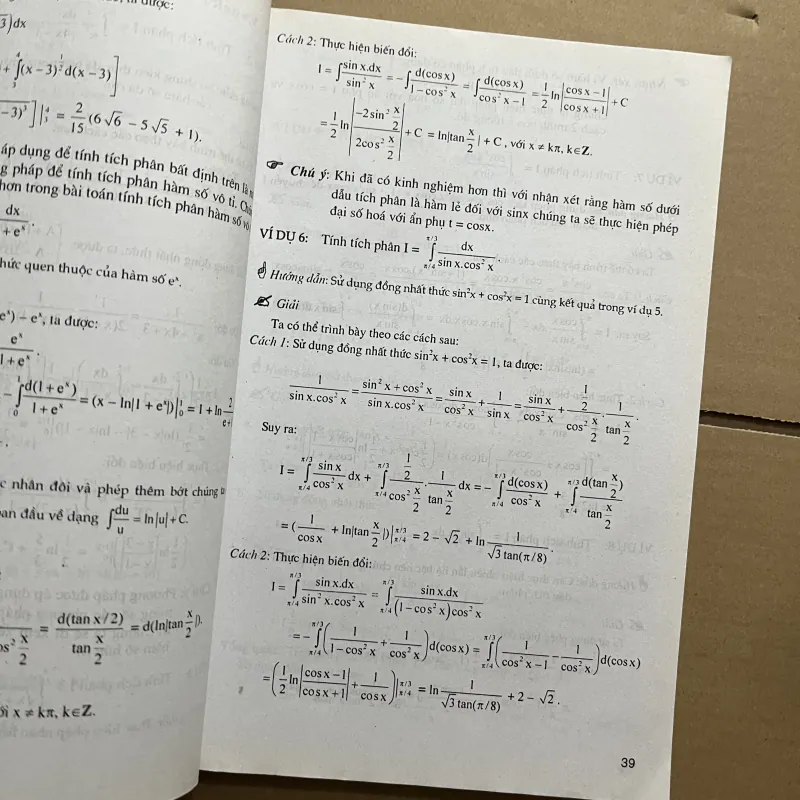 3)dx
+ ∫₃⁴(x – 3)^(1/2) d(x – 3)]
– 3)³ ]|₃⁴ = 2/15 (6√6 – 5√5 + 1).
áp dụng để tính tích phân bất định trên là
g pháp để tính tích phân hàm số vô tỉ.
hơn trong bài toán tính tích phân hàm số vô
dx / + eˣ .
hức quen thuộc của hàm số eˣ.
eˣ) – eˣ, ta được:
eˣ / 1 + eˣ .
– ∫₀¹ d(1 + eˣ)/(1 + eˣ) = (x – ln|1 + eˣ|)|₀¹ = 1 + ln 2/
c nhân đôi và phép thêm bớt chúng
ban đầu về dạng ∫du/u = ln|u| + C.
= d(tan x/2)/(tan x/2) = d(ln|tan x/2|).
ới x ≠ kπ, k∈Z.
Cách 2: Thực hiện biến đổi:
I = ∫ sin x.dx/sin² x = – ∫ d(cos x)/(1 – cos² x) = ∫ d(cos x)/(cos² x – 1) = 1/2 ln|(cos x – 1)/(cos x + 1)| + C
= 1/2 ln|(–2sin² x/2)/(2cos² x/2)| + C = ln|tan x/2| + C , với x ≠ kπ, k∈Z.
☞ Chú ý: Khi đã có kinh nghiệm hơn thì với nhận xét rằng hàm số dưới
dấu tích phân là hàm lẻ đối với sinx chúng ta sẽ thực hiện phép
đại số hoá với ẩn phụ t = cosx.
VÍ DỤ 6: Tính tích phân I = ∫_{π/4}^{π/3} dx/(sin x.cos² x) .
Hướng dẫn: Sử dụng đồng nhất thức sin²x + cos²x = 1 cùng kết quả trong ví dụ 5.
Giải
Ta có thể trình bày theo các cách sau:
Cách 1: Sử dụng đồng nhất thức sin²x + cos²x = 1, ta được:
1/(sin x.cos² x) = (sin² x + cos² x)/(sin x.cos² x) = sin x/cos² x + 1/sin x = sin x/cos² x + (1/2)/(cos² x/2) . 1/(tan x/2)
Suy ra:
I = ∫_{π/4}^{π/3} sin x/cos² x dx + ∫_{π/4}^{π/3} (1/2)/(cos² x/2) . 1/(tan x/2) dx = – ∫_{π/4}^{π/3} d(cos x)/cos² x + ∫_{π/4}^{π/3} d(tan x/2)/(tan x/2)
= (1/cos x + ln|tan x/2|)|_{π/4}^{π/3} = 2 – √2 + ln 1/(√3 tan(π/8)) .
Cách 2: Thực hiện biến đổi:
I = ∫_{π/4}^{π/3} sin x.dx/(sin² x.cos² x) = ∫_{π/4}^{π/3} sin x.dx/((1 – cos² x)cos² x)
= – ∫_{π/4}^{π/3} (1/(1 – cos² x) + 1/cos² x) d(cos x) = ∫_{π/4}^{π/3} (1/(cos² x – 1) – 1/cos² x) d(cos x)
= (1/2 ln|(cos x – 1)/(cos x + 1)| + 1/cos x)|_{π/4}^{π/3} = ln 1/(√3 tan(π/8)) + 2 – √2 .
39